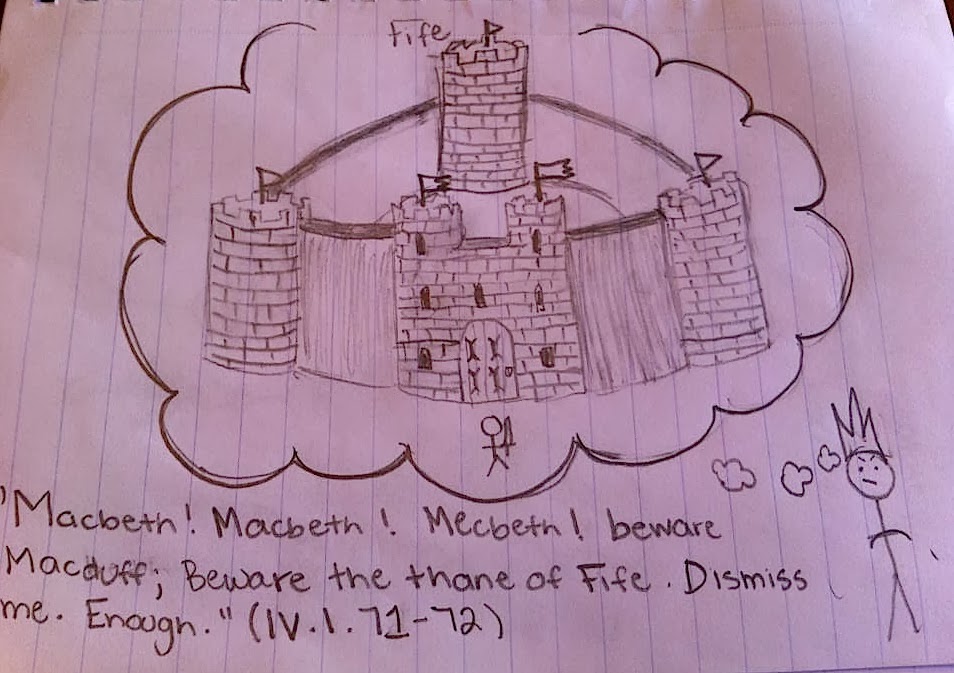 Fife
"Macbeth! Macbeth! Mecbeth! beware
Macduff; Beware the thane of Fife. Dismiss
me. Enough." (IV.1.71-72)